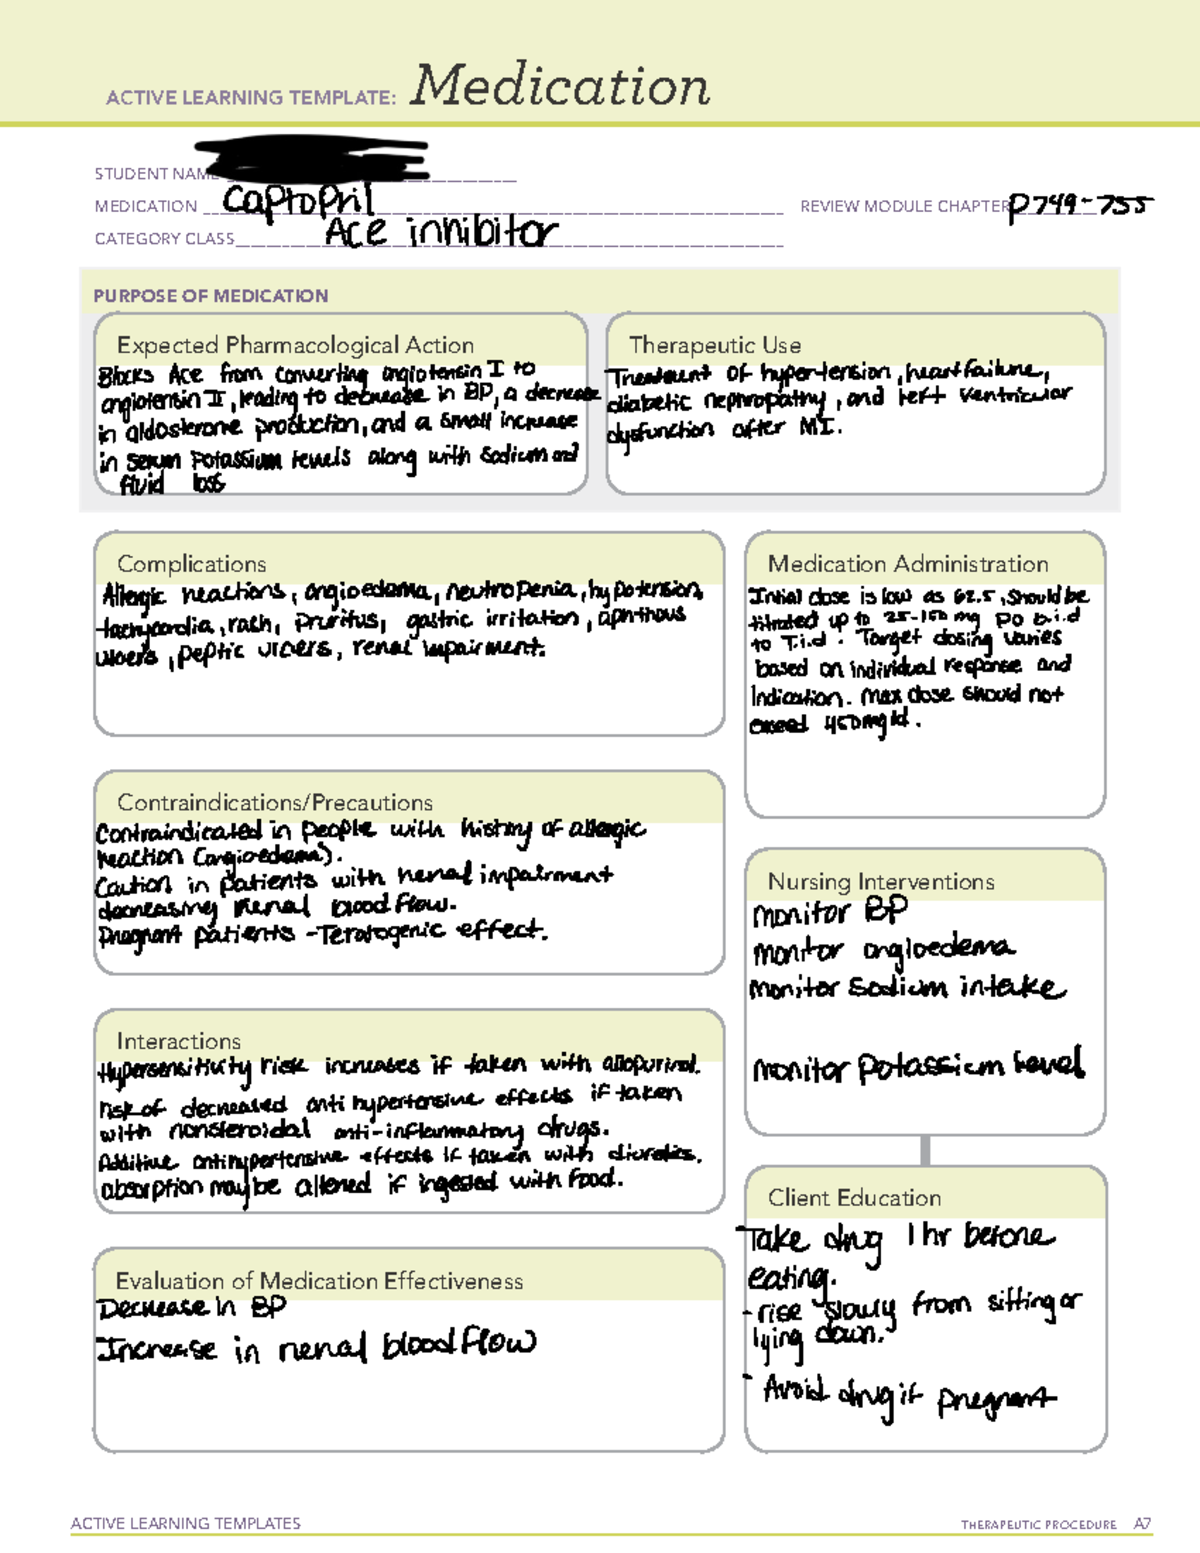 ACTIVE LEARNING TEMPLATE: Medication
STUDENT NAME
MEDICATION Captopril REVIEW MODULE CHAPTER P749-755
CATEGORY CLASS Ace innibitor
PURPOSE OF MEDICATION
Expected Pharmacological Action
Blocks Ace from converting angiotensin I to
angiotensin II, leading to decrease in BP, a decrease
in aldosterone production, and a small increase
in serum potassium levels along with sodium and
fluid loss
Therapeutic Use
Treatment of hypertension, heart failure,
diabetic nephropathy, and left ventricular
dysfunction after MI.
Complications
Allergic reactions, angioedema, neutropenia, hypotension,
tachycardia, rach, pruritus, gastric irritation, aphthous
ulcers, peptic ulcers, renal impairment.
Medication Administration
Initial dose is low as 62.5, should be
titrated up to 25-150 mg PO b.i.d
to T.i.d. Target dosing varies
based on individual response and
Indication. Max dose should not
exceed 450mg/d.
Contraindications/Precautions
Contraindicated in people with history of allergic
reaction (angioedema).
Caution in patients with renal impairment
decreasing renal blood flow.
Pregnant patients - Teratogenic effect.
Nursing Interventions
monitor BP
monitor angioedema
monitor sodium intake
monitor potassium level
Interactions
Hypersensitivity risk increases if taken with allopurinol.
risk of decreased antihypertensive effects if taken
with nonsteroidal anti-inflammatory drugs.
Additive antihypertensive effects if taken with diuretics.
absorption may be altered if ingested with food.
Client Education
-Take drug 1hr before
eating.
-rise slowly from sitting or
lying down.
- Avoid drug if pregnant
Evaluation of Medication Effectiveness
Decrease in BP
Increase in renal blood flow
ACTIVE LEARNING TEMPLATES THERAPEUTIC PROCEDURE A7